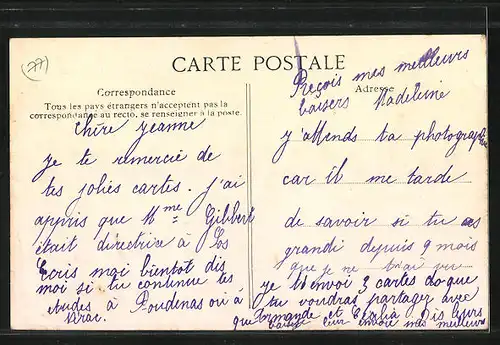 (77)
CARTE POSTALE
Correspondance
Tous les pays étrangers n'acceptent pas la
correspondance au recto, se renseigner à la poste.
Chère Jeanne
Je te remercie de
tes jolies cartes. J'ai
appris que Mme Gilbert
était directrice à Los
Ecris moi bientôt dis
moi si tu continue tes
études à Poudenas ou à
Adresse
Reçois mes meilleurs
baisers Madeleine
J'attends ta photographie
car il me tarde
de savoir si tu as
grandi depuis 9 mois
que je ne t'ai vu
je t'envoi 3 cartes
tu voudras partager avec
Armande et Dis leurs
que leur envoie mes meilleurs
baisers